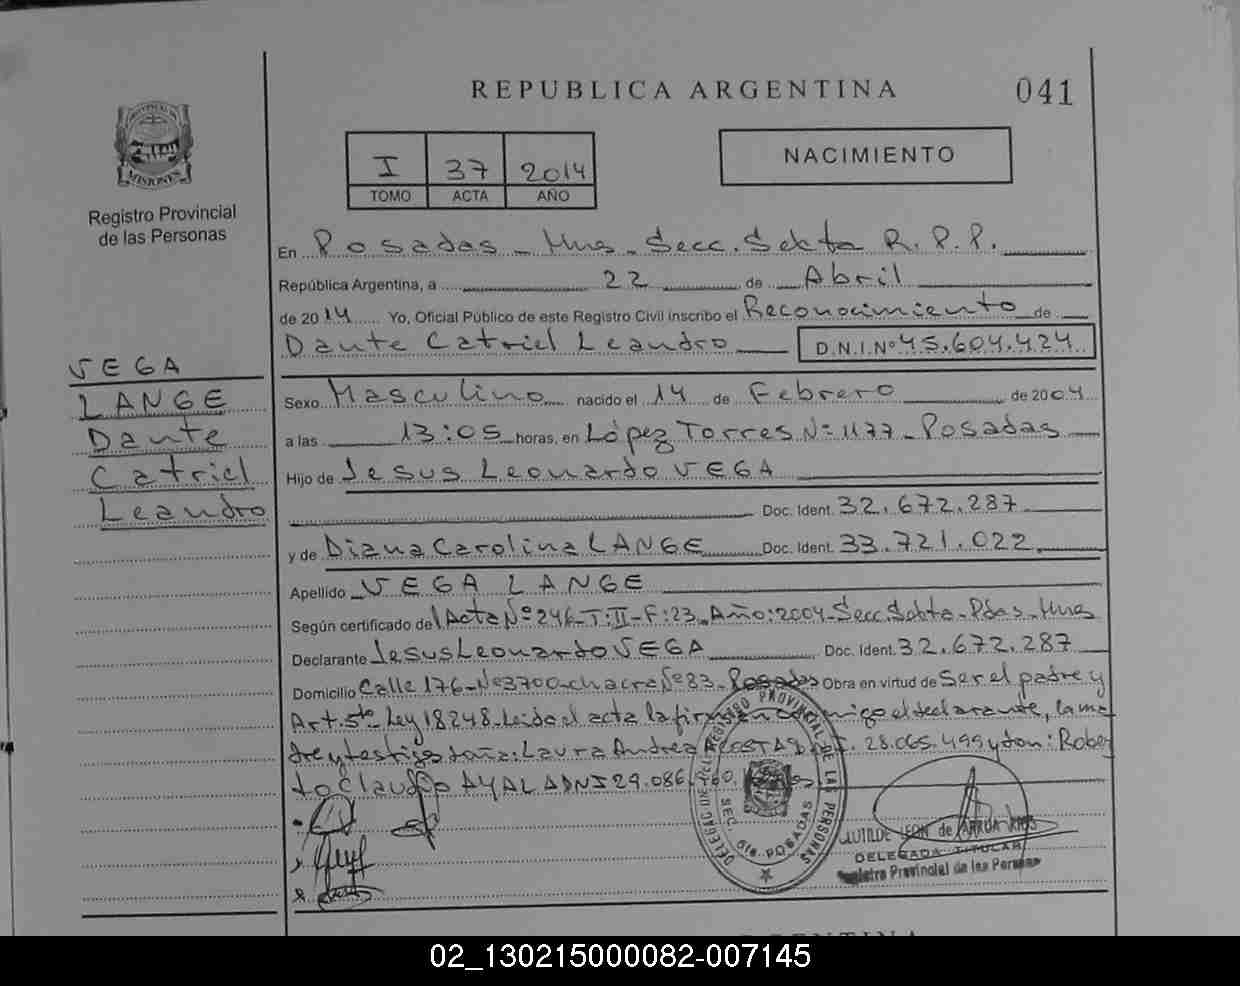 REPUBLICA ARGENTINA
041
PROVINCIA DE
MISIONES
Registro Provincial
de las Personas
I 37 2014
TOMO ACTA AÑO
NACIMIENTO
En Posadas - Mnes - Secc. Sexta R.P.P.
República Argentina, a 22 de Abril
de 2014 Yo, Oficial Público de este Registro Civil inscribo el Reconocimiento de
Dante Catriel Leandro D.N.I.Nº 45.604.424
VEGA
LANGE
Dante
Catriel
Leandro
Sexo Masculino nacido el 14 de Febrero de 2004
a las 13:05 horas, en López Torres Nº 1177 - Posadas
Hijo de Jesus Leonardo VEGA
Doc. Ident. 32.672.287
y de Diana Carolina LANGE Doc. Ident. 33.721.022
Apellido VEGA LANGE
Según certificado del Acta Nº 246 - T: II - F: 23 - Año: 2004 - Secc. Sexta - Pdas - Mnes
Declarante Jesus Leonardo VEGA Doc. Ident. 32.672.287
Domicilio Calle 176 - Nº 3700 - chacra Nº 83 - Posadas Obra en virtud de Ser el padre y
Art. 5to Ley 18248 - Leido el acta la firman conmigo el declarante, la ma
dre y testigos doña: Laura Andrea ACOSTA 28.065.499 y don: Rober
to Claudio AYALA DNI 29.086.
REGISTRO PROVINCIAL DE LAS PERSONAS
SEC. 6ta POSADAS
CLOTILDE LEON de
DELEGADA TITULAR
Registro Provincial de las Personas
02_130215000082-007145